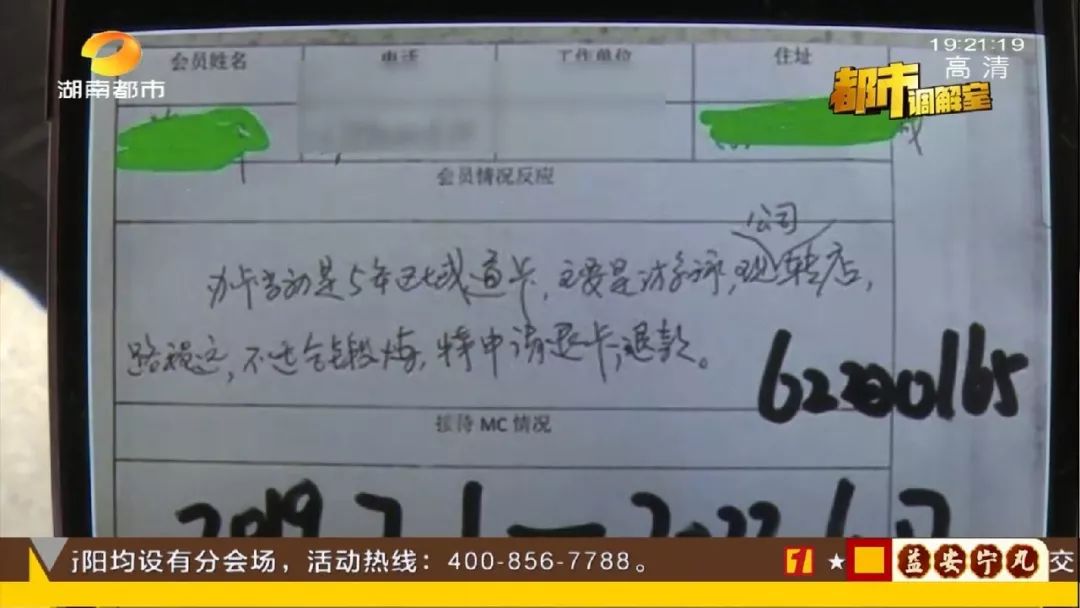 湖南都市
19:21:19
高清
都市调解室
会员姓名 电话 工作单位 住址
会员情况反应
公司
办卡当初是5年 卡,主要是 ,现转店,
路程远,不适合锻炼,特申请退卡,退款。
62200165
接待MC情况
2019 7 1 — 2022 6
阳均设有分会场，活动热线：400-856-7788。
★
益安宁丸
交